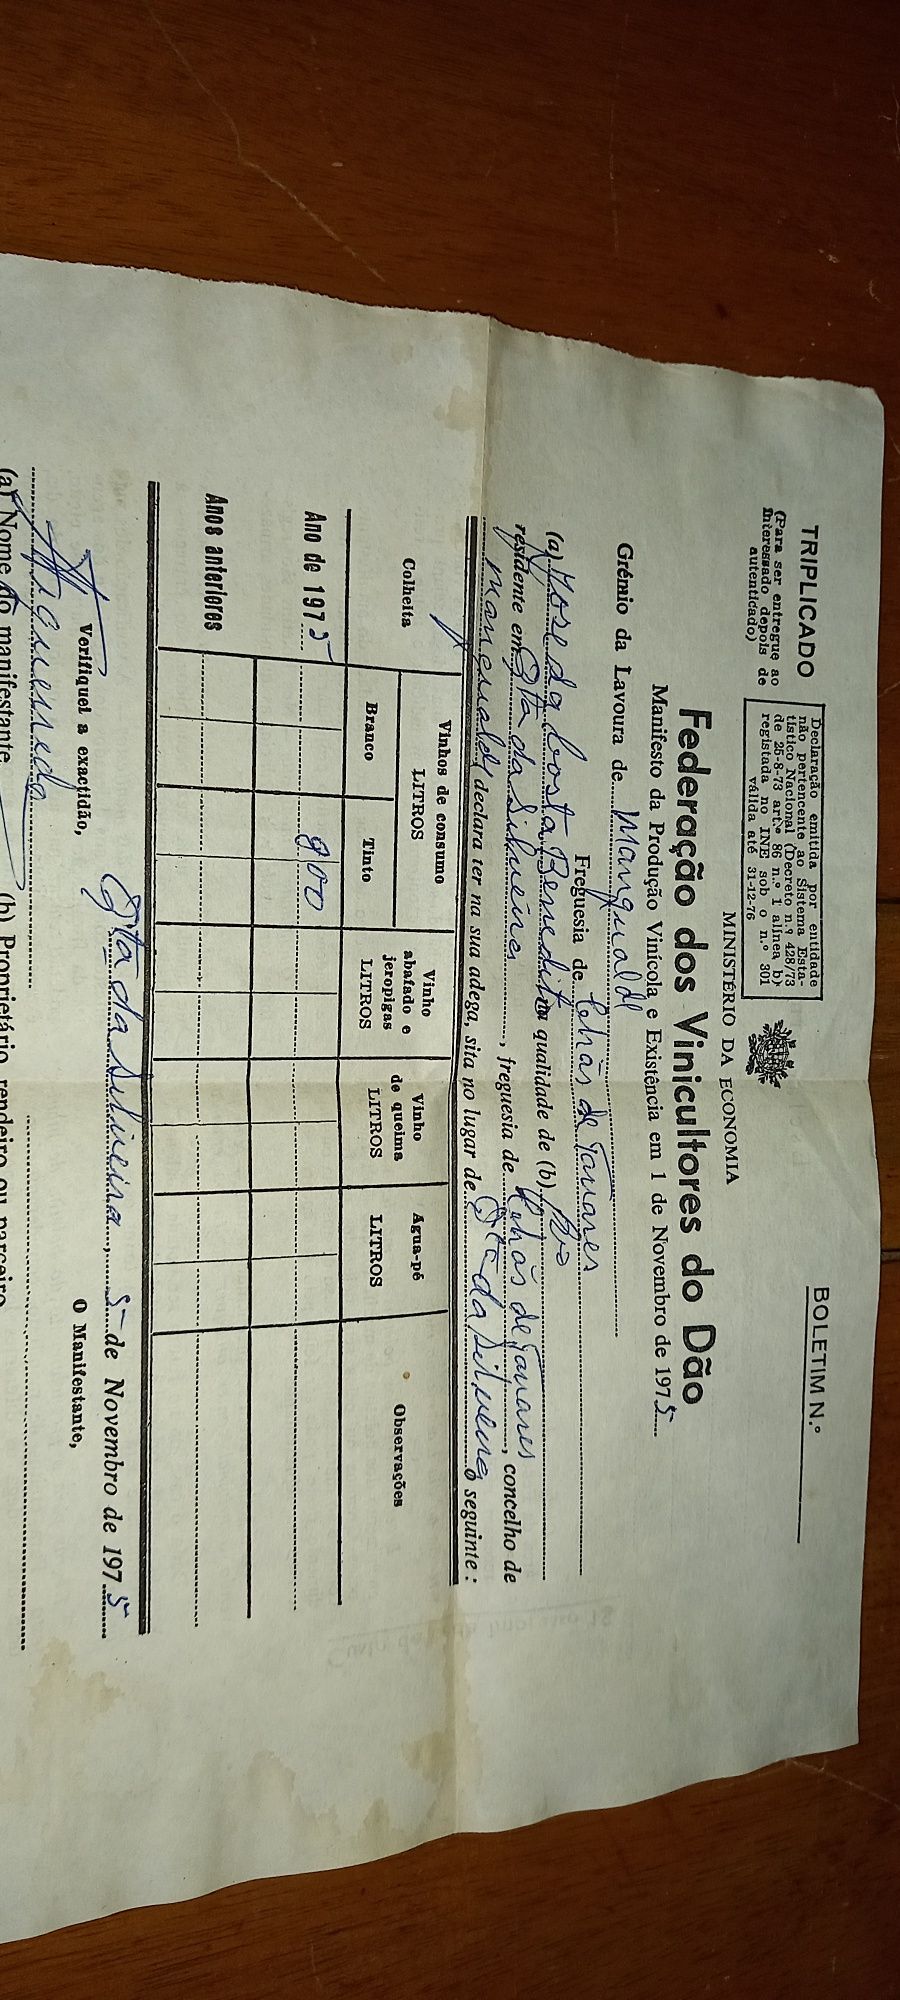 TRIPLICADO
(Para ser entregue ao
interessado depois de
autenticado)
Declaração emitida por entidade
não pertencente ao Sistema Esta-
tístico Nacional (Decreto n.º 428/73
de 25-8-73 art.º 86 n.º 1 alínea b)
registada no INE sob o n.º 301
válida até 31-12-76
BOLETIM N.º
MINISTÉRIO DA ECONOMIA
Federação dos Vinicultores do Dão
Manifesto da Produção Vinícola e Existência em 1 de Novembro de 1975
Grémio da Lavoura de Mangualde
Freguesia de Chãs de Tavares
(a) José da Costa Benedito na qualidade de (b)
residente em Qtã da Silveira, freguesia de Chãs de Tavares, concelho de
Mangualde declara ter na sua adega, sita no lugar de Qtã da Silveira o seguinte:
Colheita
Vinhos de consumo
LITROS
Branco
Tinto
Vinho
abafado e
jeropigas
LITROS
Vinho
de queima
LITROS
Água-pé
LITROS
Observações
Ano de 1975
900
Anos anteriores
Qtã da Silveira, 5 de Novembro de 1975
Verifiquei a exactidão,
O Manifestante,
(a) Nome do manifestante (b) Proprietário, rendeiro ou parceiro